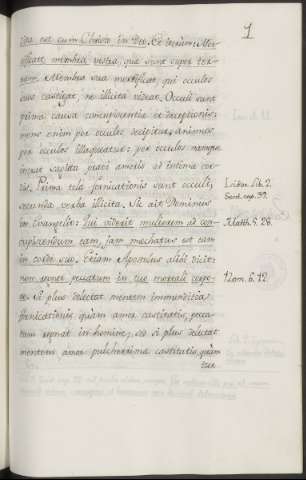 1
stra est cum Christo in Deo. Et iterum: Mor-
tificate membra vestra, quæ sunt super ter-
ram. Membra sua mortificat, qui occulos
suos castigat, ne illicita videat. Occuli sunt
prima causa concupiscentiæ et deceptionis:
mens enim per occulos decipitur, animus
per occulos illaqueatur: per occulos namque
intrat sagitta pravi amoris ad intima cor-
dis. Prima tela fornicationis sunt occuli,
secunda verba illicita. Sic ait Dominus
in Evangelio: Qui viderit mulierem ad con-
cupiscendum eam, jam mœchatus est eam
in corde suo. Etiam Apostolus alibi dicit:
non regnet peccatum in tuo mortali corpo-
re. Si plus delectat mentem immunditia
fornicationis quam amor castitatis, pecca-
tum regnat in homine, sed si plus delectat
mentem amor pulcherrima castitatis, quam
tur
Isidor. Lib. 2.
Sent. cap. 39.
Matth. 5. 28.
Rom. 6. 12.